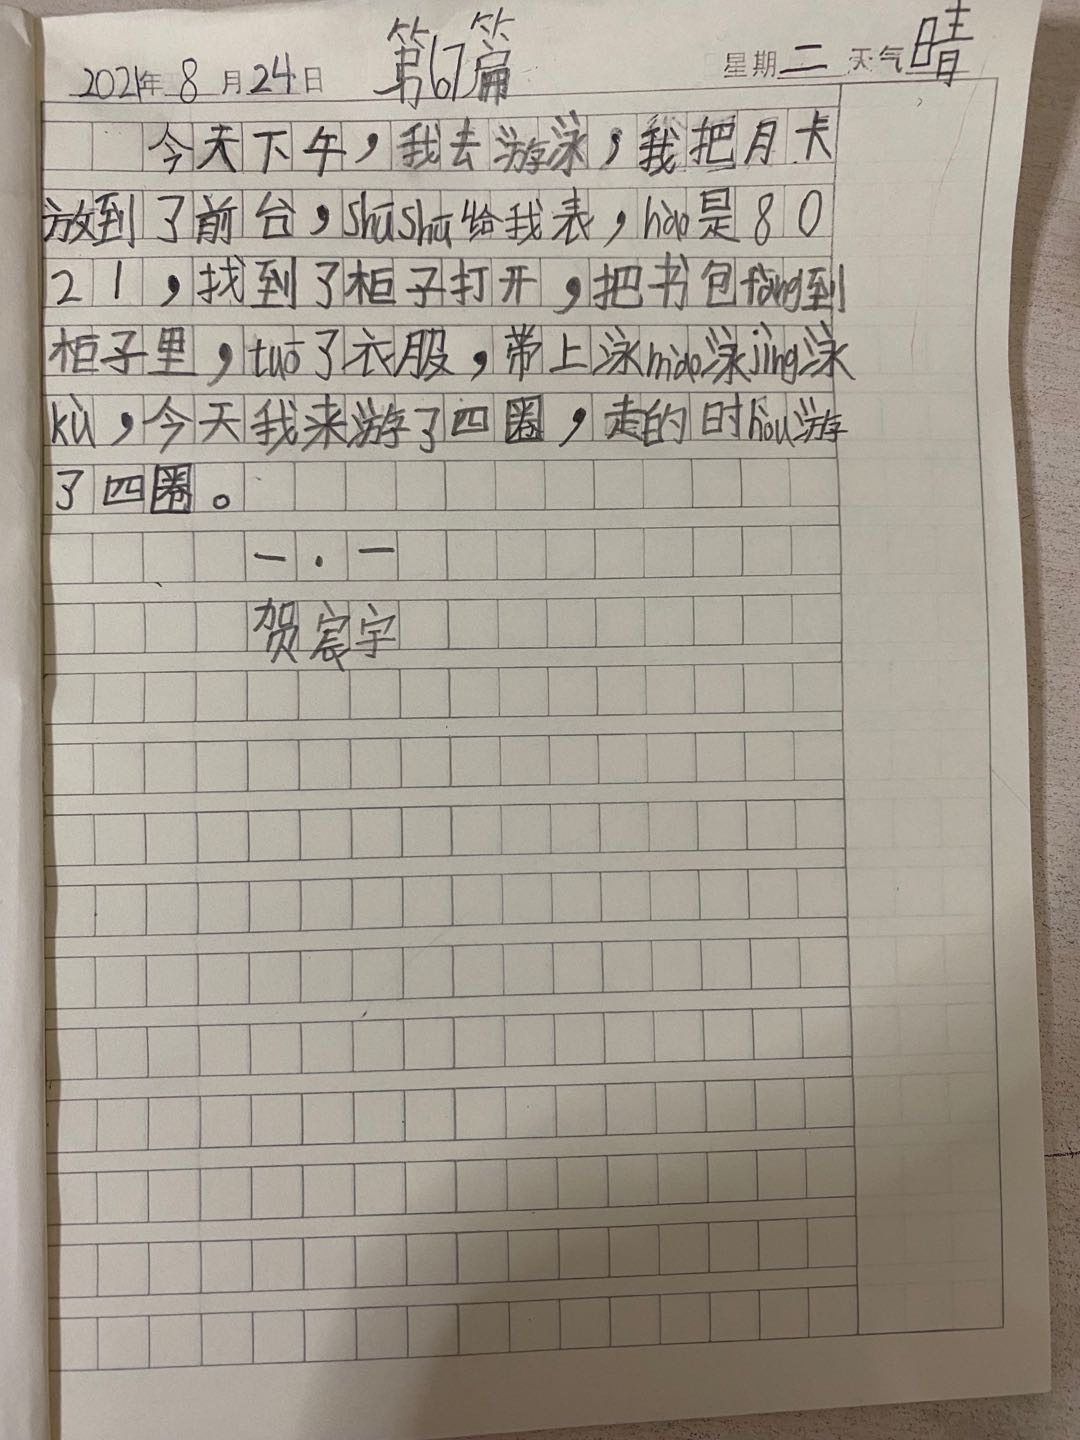 2021年8月24日 第67篇 星期二 天气晴
今天下午，我去游泳，我把月卡
放到了前台，shūshu给我表，hào是80
21，找到了柜子打开，把书包fàng到
柜子里，tuō了衣服，带上泳mào泳jìng泳
kù，今天我来游了四圈，走的时hòu游
了四圈。
一.一
贺宸宇